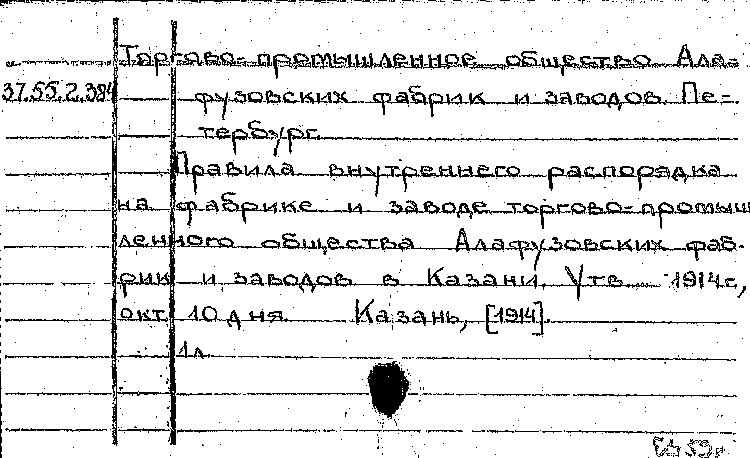 Торгово-промышленное общество Ала-
37.55.2.384 фузовских фабрик и заводов. Пе-
тербург.
Правила внутреннего распорядка
на фабрике и заводе торгово-промыш
ленного общества Алафузовских фаб-
рик и заводов в Казани. Утв. 1914 г.,
окт. 10 дня. Казань, [1914].
1 л.